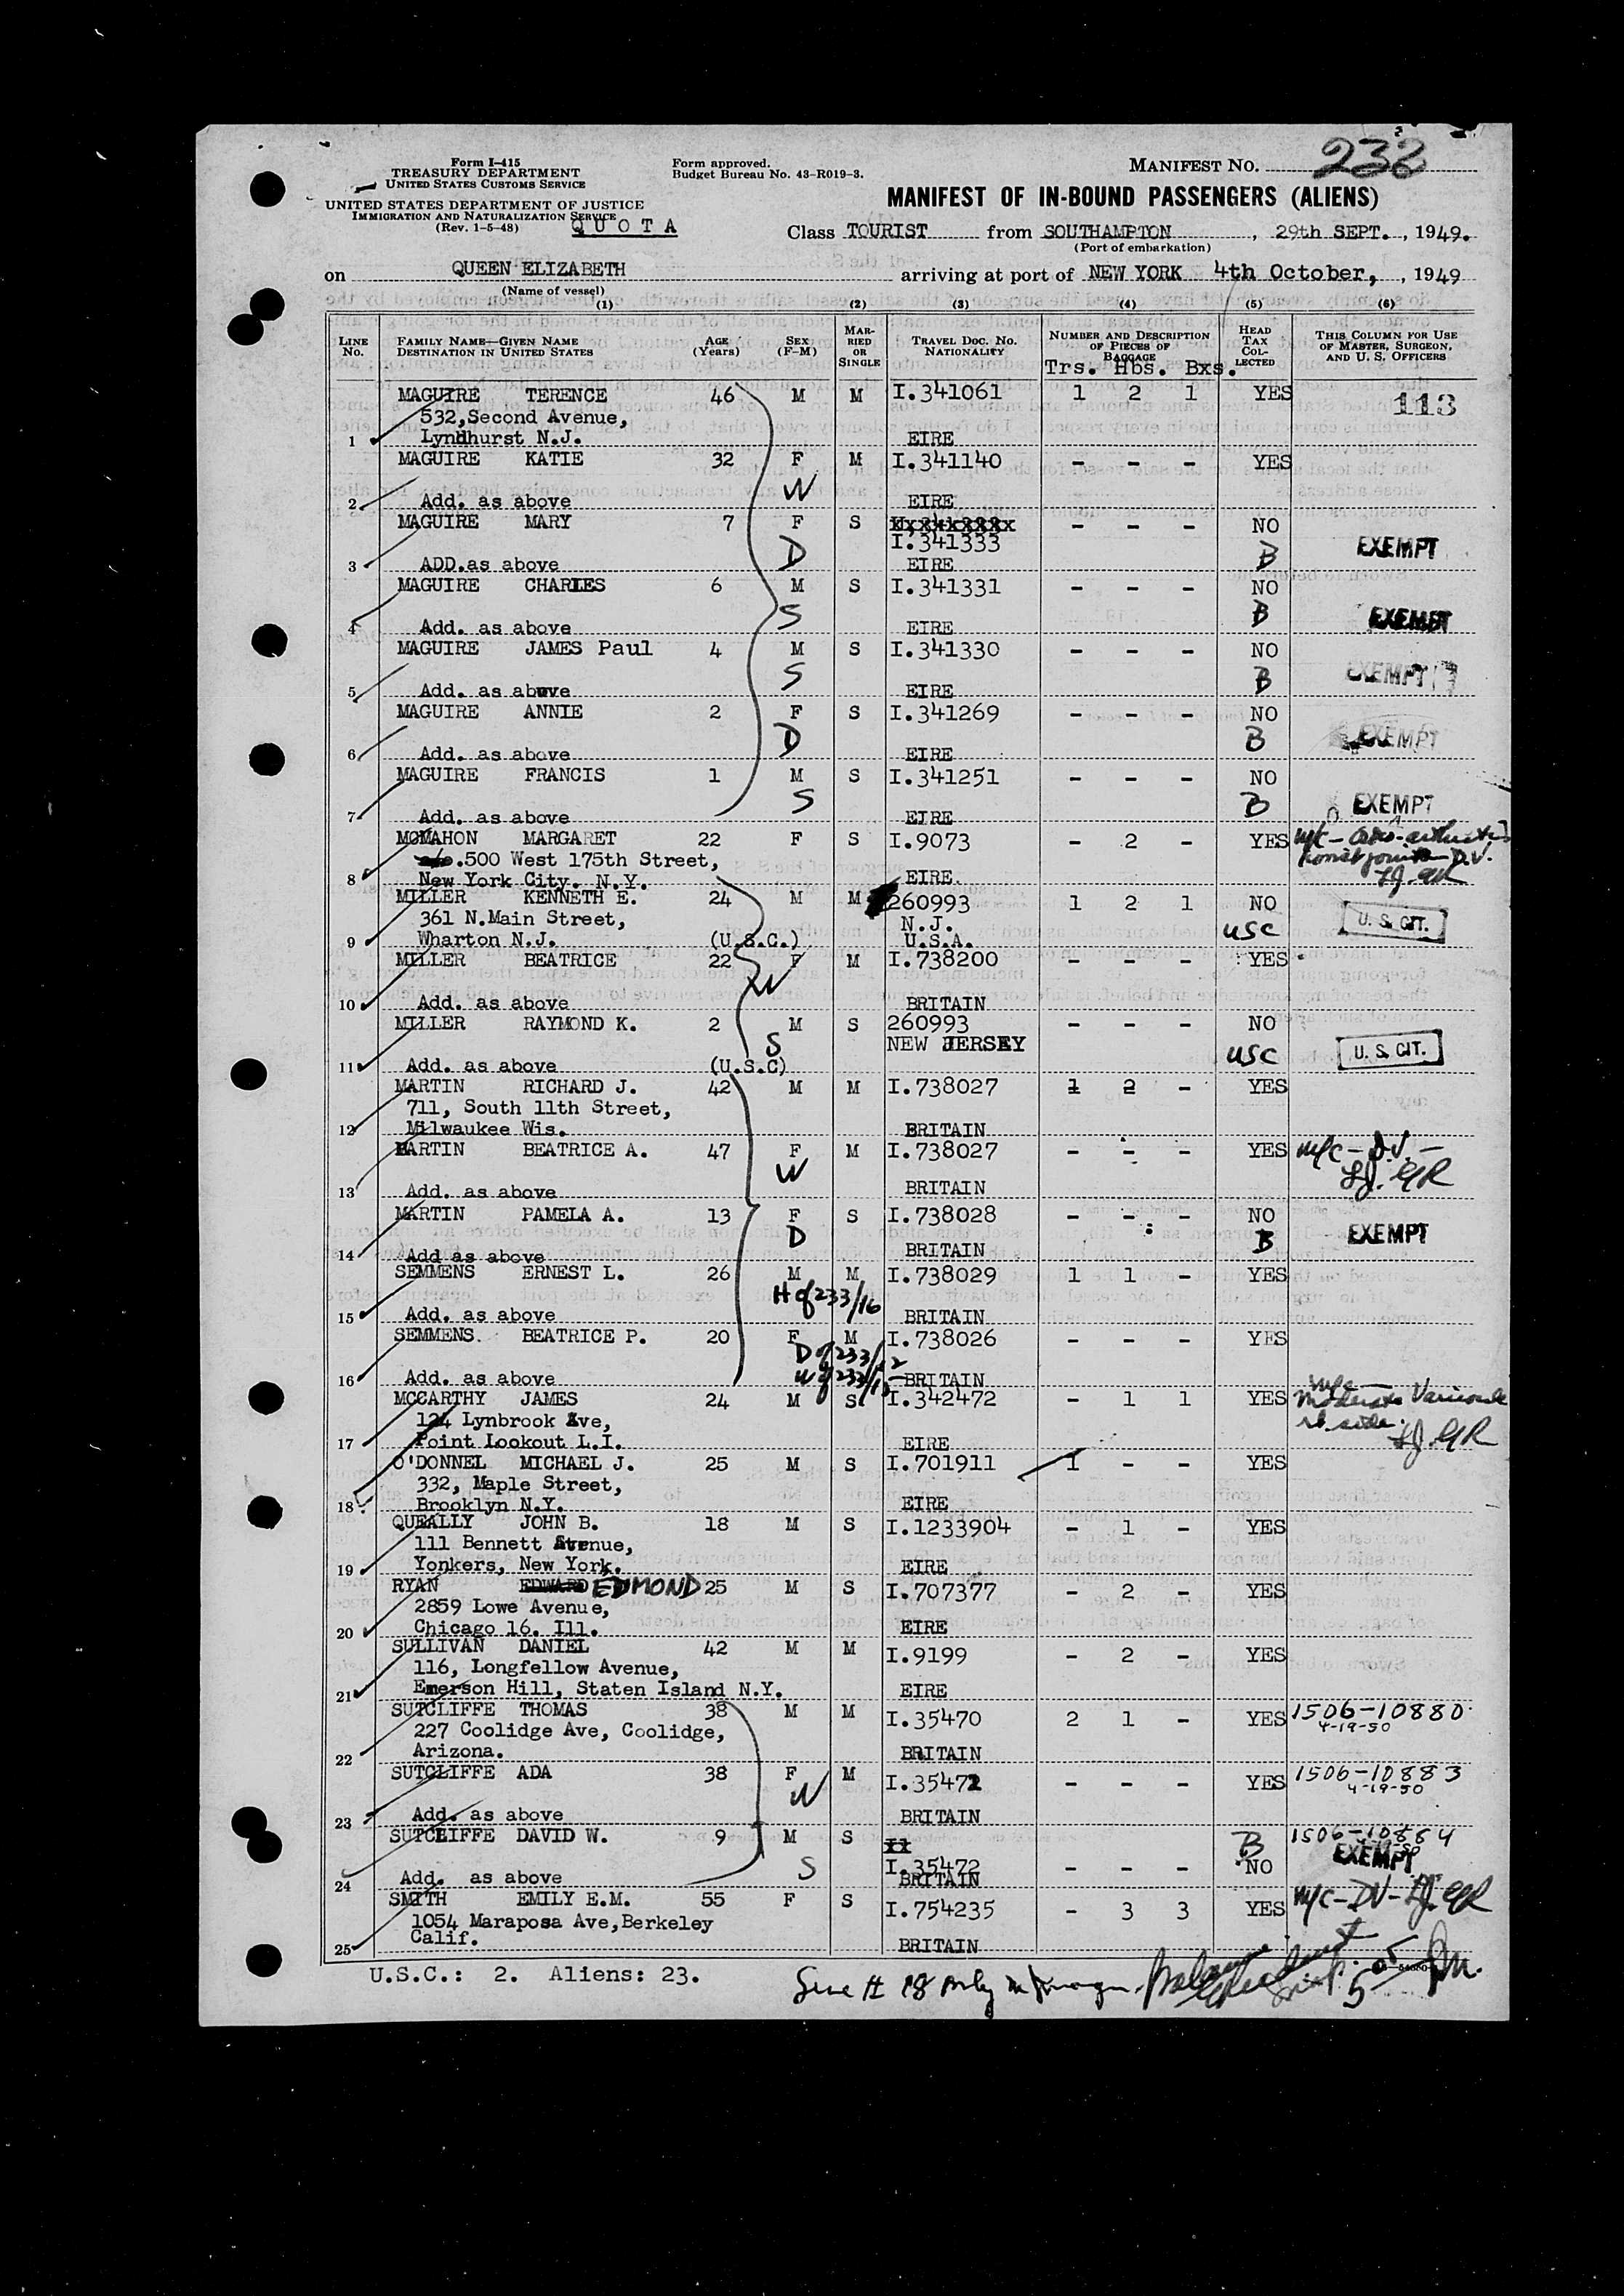 Form I-415
TREASURY DEPARTMENT
UNITED STATES CUSTOMS SERVICE
UNITED STATES DEPARTMENT OF JUSTICE
IMMIGRATION AND NATURALIZATION SERVICE
(Rev. 1-5-48) QUOTA
Form approved.
Budget Bureau No. 43-R019-3.
MANIFEST NO. 232
MANIFEST OF IN-BOUND PASSENGERS (ALIENS)
Class TOURIST from SOUTHAMPTON, 29th SEPT., 1949.
(Port of embarkation)
on QUEEN ELIZABETH arriving at port of NEW YORK 4th October, , 1949
(Name of vessel)
(1) (2) (3) (4) (5) (6)
LINE No. FAMILY NAME—GIVEN NAME DESTINATION IN UNITED STATES AGE (Years) SEX (F-M) MARRIED OR SINGLE TRAVEL DOC. NO. NATIONALITY NUMBER AND DESCRIPTION OF PIECES OF BAGGAGE HEAD TAX COLLECTED THIS COLUMN FOR USE OF MASTER, SURGEON, AND U. S. OFFICERS
Trs. Hbs. Bxs.
MAGUIRE TERENCE 46 M M I.341061 1 2 1 YES 113
532,Second Avenue,
1 Lyndhurst N.J. EIRE
MAGUIRE KATIE 32 F M I.341140 - - - YES
W
2 Add. as above EIRE
MAGUIRE MARY 7 F S - - - NO
D I.341333 B EXEMPT
3 ADD.as above EIRE
MAGUIRE CHARLES 6 M S I.341331 - - - NO
S B EXEMPT
4 Add. as above EIRE
MAGUIRE JAMES Paul 4 M S I.341330 - - - NO
S B EXEMPT
5 Add. as above EIRE
MAGUIRE ANNIE 2 F S I.341269 - - - NO
D B EXEMPT
6 Add. as above EIRE
MAGUIRE FRANCIS 1 M S I.341251 - - - NO
S B EXEMPT
7 Add. as above EIRE
MCMAHON MARGARET 22 F S I.9073 - 2 - YES M/C
.500 West 175th Street, D.V.
8 New York City. N.Y. EIRE. GR
MILLER KENNETH E. 24 M M 260993 1 2 1 NO
361 N.Main Street, N.J. USC U. S. CIT.
9 Wharton N.J. (U.S.C.) U.S.A.
MILLER BEATRICE 22 F M I.738200 - - - YES
W
10 Add. as above BRITAIN
MILLER RAYMOND K. 2 M S 260993 - - - NO
S NEW JERSEY USC U. S. CIT.
11 Add. as above (U.S.C)
MARTIN RICHARD J. 42 M M I.738027 1 2 - YES
711, South 11th Street,
12 Milwaukee Wis. BRITAIN
MARTIN BEATRICE A. 47 F M I.738027 - - - YES M/C - D.V. -
W GR
13 Add. as above BRITAIN
MARTIN PAMELA A. 13 F S I.738028 - - - NO
D B EXEMPT
14 Add as above BRITAIN
SEMMENS ERNEST L. 26 M M I.738029 1 1 - YES
H of 233/16
15 Add. as above BRITAIN
SEMMENS. BEATRICE P. 20 F M I.738026 - - - YES
D of 233/12
16 Add. as above W of 232/15 BRITAIN
MCCARTHY JAMES 24 M S I.342472 - 1 1 YES M/C
124 Lynbrook Ave, Moderate
17 Point Lookout L.I. EIRE side. GR
O'DONNEL MICHAEL J. 25 M S I.701911 1 - - YES
332, Maple Street,
18 Brooklyn N.Y. EIRE
QUEALLY JOHN B. 18 M S I.1233904 - 1 - YES
111 Bennett Avenue,
19 Yonkers, New York. EIRE
RYAN EDWARD EDMOND 25 M S I.707377 - 2 - YES
2859 Lowe Avenue,
20 Chicago 16. Ill. EIRE
SULLIVAN DANIEL 42 M M I.9199 - 2 - YES
116, Longfellow Avenue,
21 Emerson Hill, Staten Island N.Y. EIRE
SUTCLIFFE THOMAS 38 M M I.35470 2 1 - YES 1506-10880
227 Coolidge Ave, Coolidge, 4-19-50
22 Arizona. BRITAIN
SUTCLIFFE ADA 38 F M I.35471 - - - YES 1506-10883
W 4-19-50
23 Add. as above BRITAIN
SUTCLIFFE DAVID W. 9 M S B 1506-10884
S I.35472 - - - NO EXEMPT
24 Add. as above BRITAIN
SMITH EMILY E.M. 55 F S I.754235 - 3 3 YES M/C - DV - GR
1054 Maraposa Ave,Berkeley
25 Calif. BRITAIN
U.S.C.: 2. Aliens: 23.